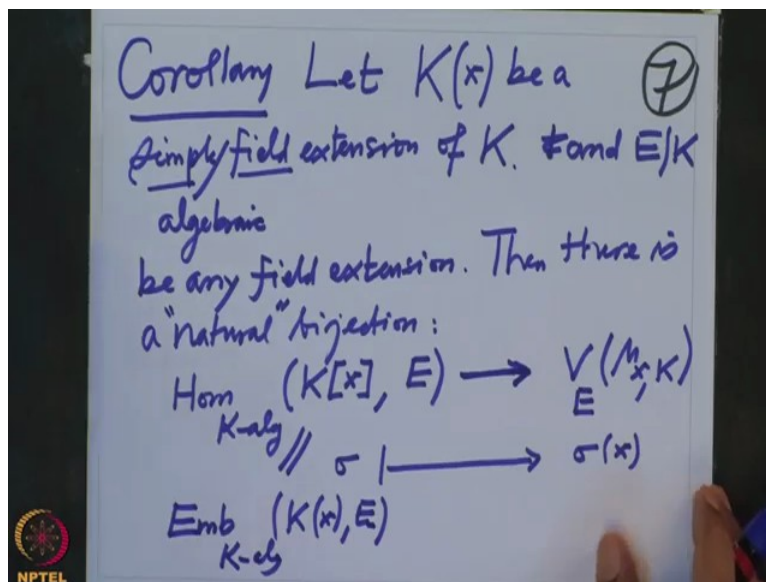 Corollary Let K(x) be a ⑦
Simply field extension of K. and E/K
algebraic
be any field extension. Then there is
a "natural" bijection:
Hom K-alg (K[x], E) → V_E(μ_{x,K})
∥ σ ↦ σ(x)
Emb K-alg (K(x), E)
NPTEL